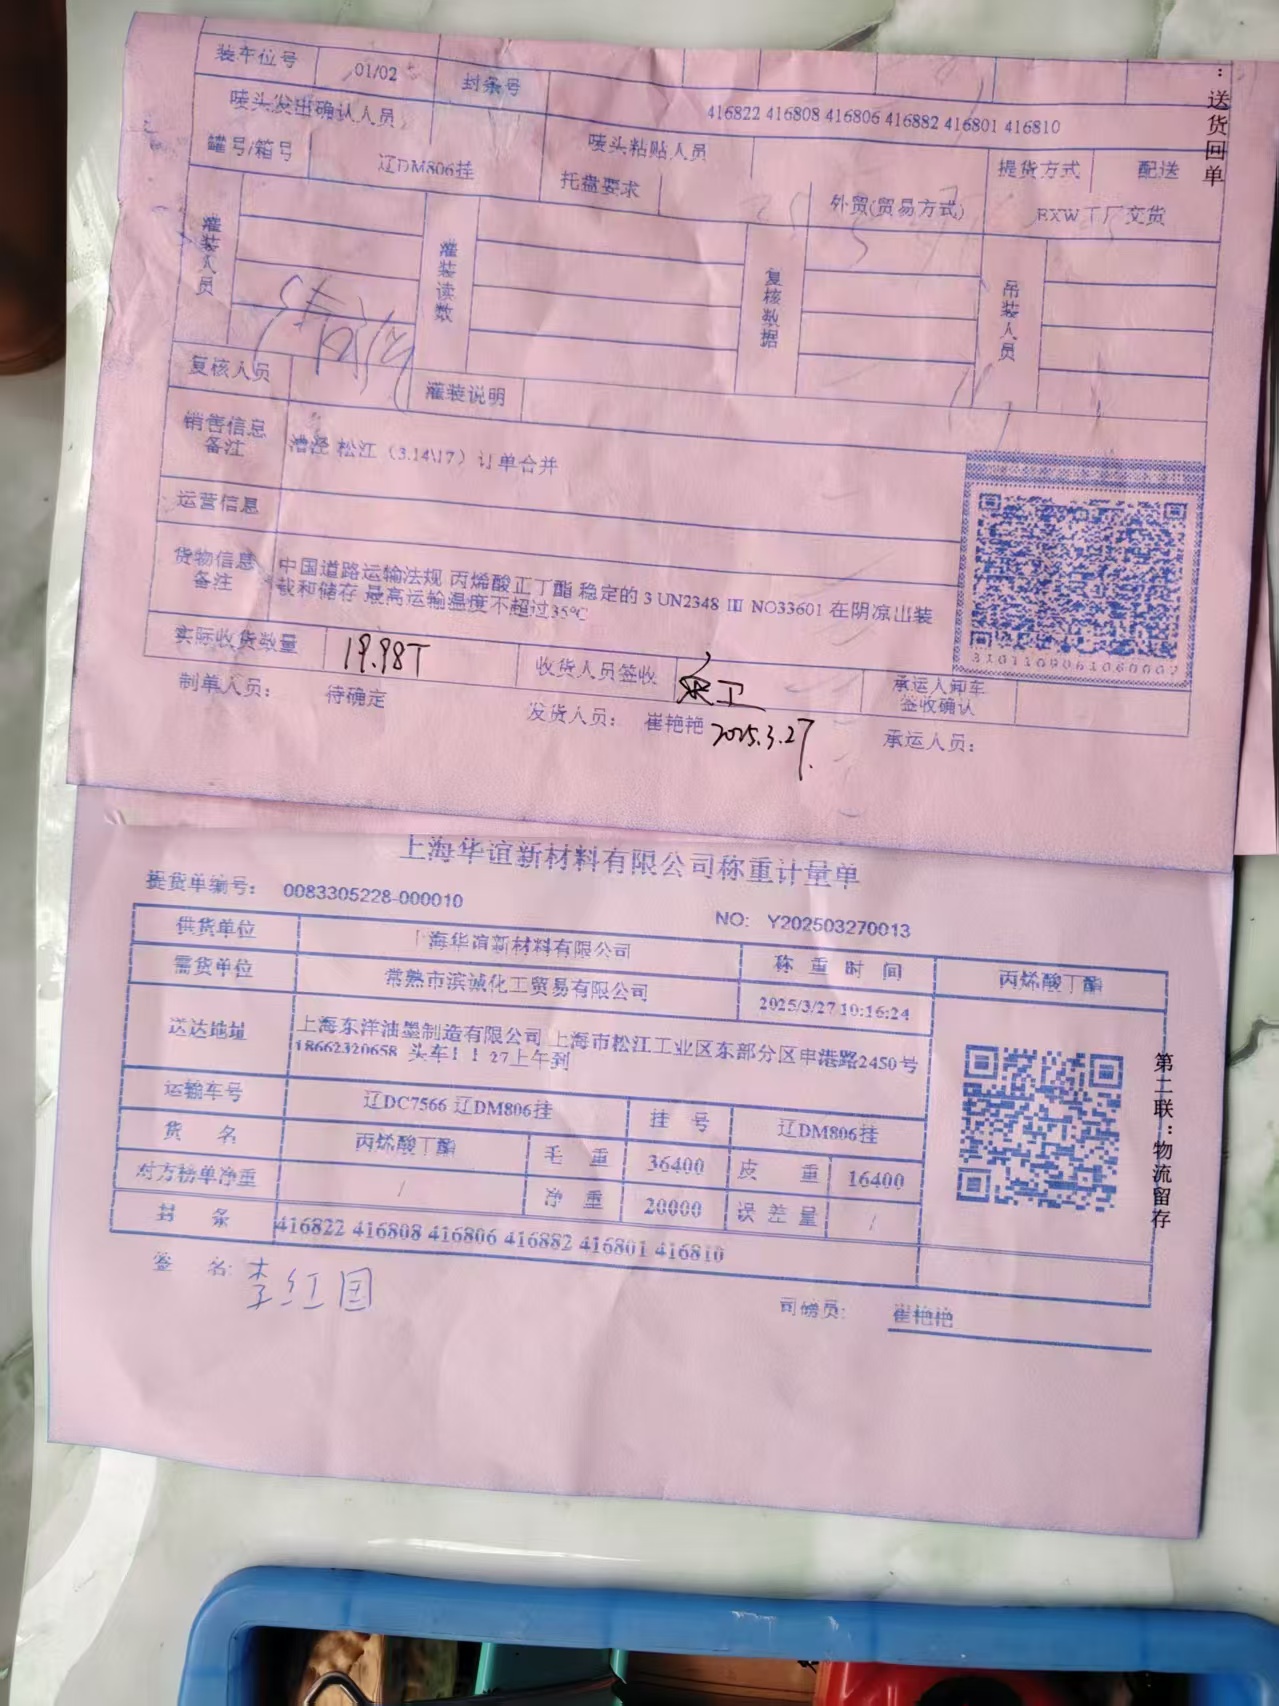 装车位号 01/02 封条号 416822 416808 416806 416882 416801 416810
唛头发出确认人员 唛头粘贴人员
罐号/箱号 辽DM806挂 托盘要求 提货方式 配送
外贸(贸易方式) EXW工厂交货
灌装人员 灌装读数 复核数据 吊装人员
复核人员 灌装说明
销售信息备注 漕泾 松江（3.14\17）订单合并
运营信息
货物信息备注 中国道路运输法规 丙烯酸正丁酯 稳定的 3 UN2348 III NO33601 在阴凉出装
载和储存 最高运输温度不超过35℃
3101109061060007
实际收货数量 19.98T 收货人员签收 承运人卸车签收确认
制单人员: 待确定 发货人员: 崔艳艳 2025.3.27. 承运人员:
: 送货回单
上海华谊新材料有限公司称重计量单
提货单编号: 0083305228-000010 NO: Y202503270013
供货单位 上海华谊新材料有限公司 称重时间 丙烯酸丁酯
需货单位 常熟市滨诚化工贸易有限公司 2025/3/27 10:16:24
送达地址 上海东洋油墨制造有限公司 上海市松江工业区东部分区申港路2450号
18662320658 头车！！27上午到
运输车号 辽DC7566 辽DM806挂 挂号 辽DM806挂
货名 丙烯酸丁酯 毛重 36400 皮重 16400
对方榜单净重 / 净重 20000 误差量 /
封条 416822 416808 416806 416882 416801 416810
签名: 李红国 司磅员: 崔艳艳
第二联：物流留存